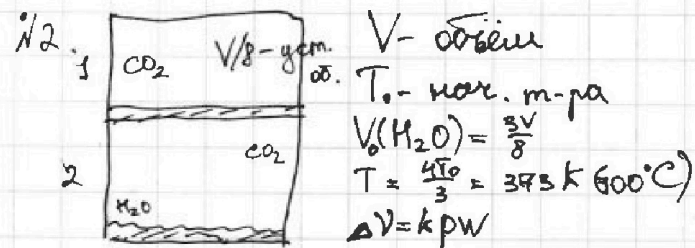 №2.
1
CO₂
V/8 - уст. об.
2
CO₂
H₂O
V - объём
T₀ - нач. т-ра
V₀(H₂O) = 3V/8
T = 4T₀/3 = 373 K (100°C)
ΔV = kpw